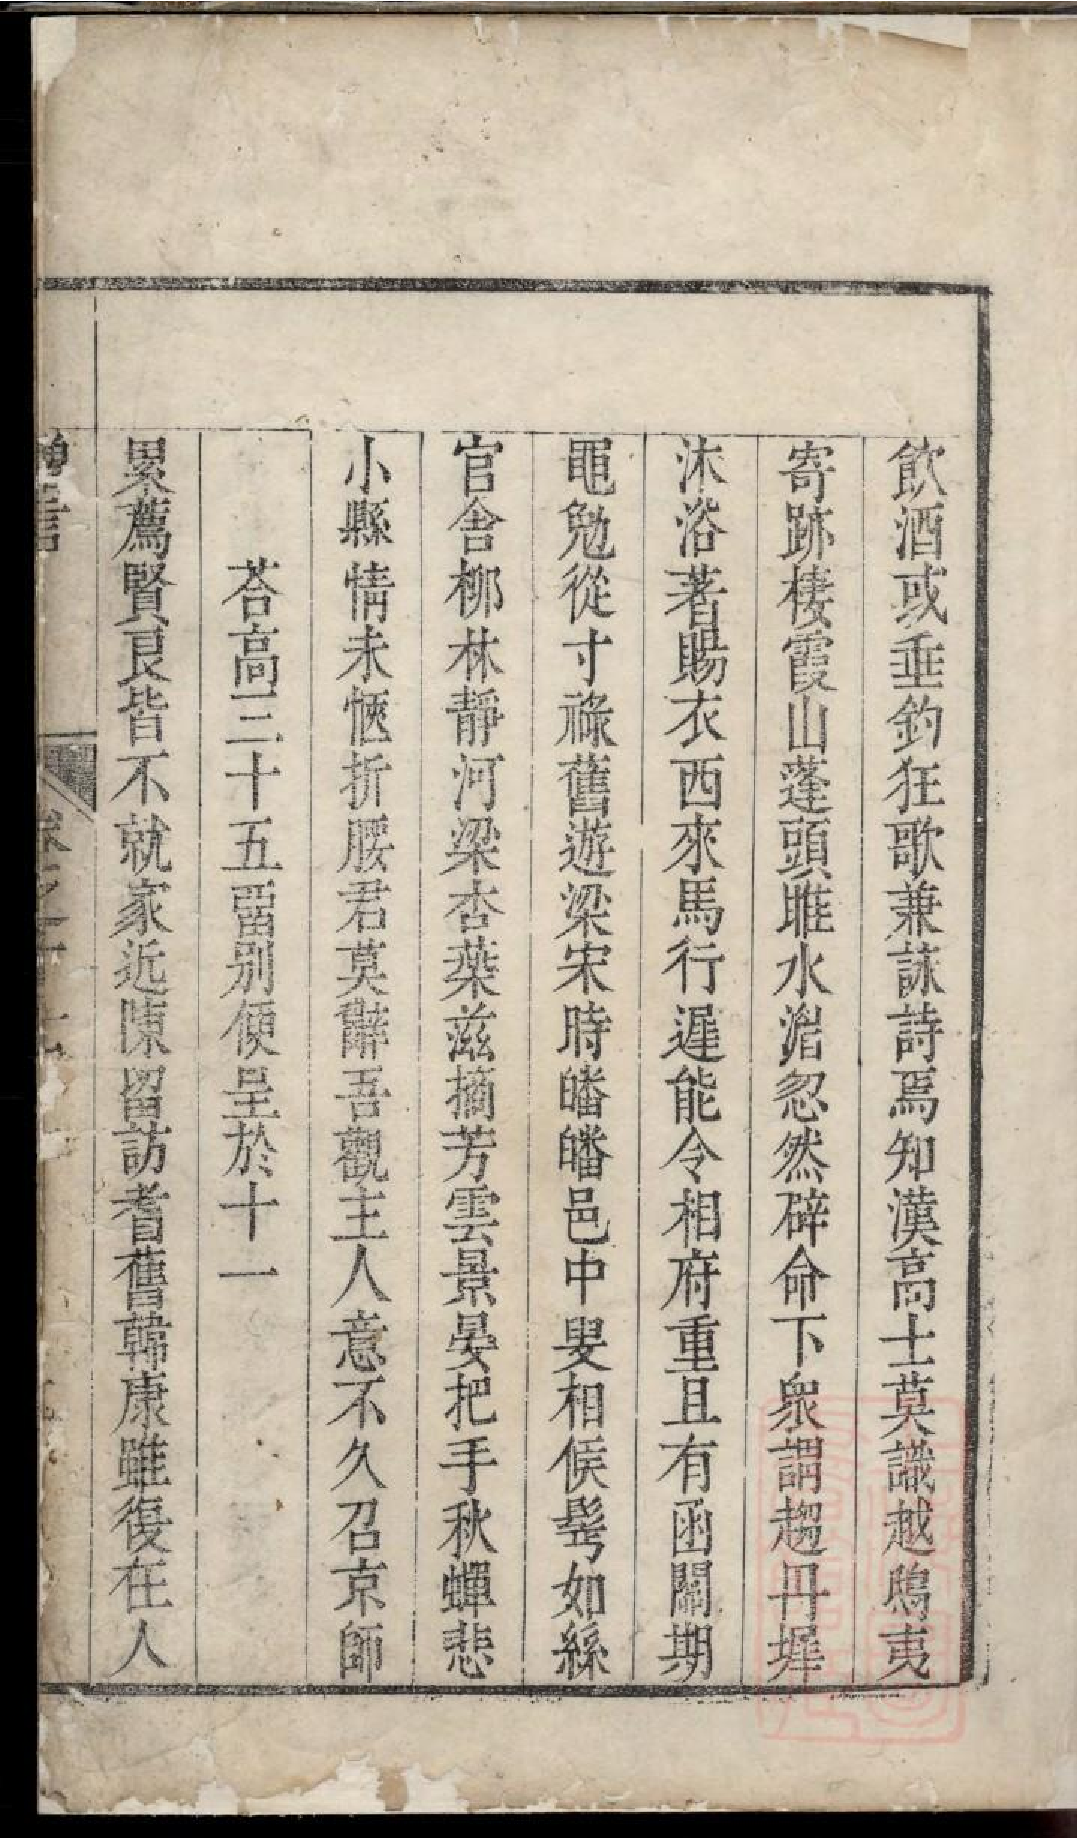 飲酒或垂釣狂歌兼詠詩焉知漢高士莫識越鴟夷
寄跡棲霞山蓬頭睢水湄忽然辟命下衆謂趨丹墀
沐浴著賜衣西來馬行遲能令相府重且有函關期
黽勉從寸祿舊遊梁宋時皤皤邑中叟相候鬂如絲
官舍柳林靜河梁杏葉滋摘芳雲景晏把手秋蟬悲
小縣情未愜折腰君莫辭吾觀主人意不久召京師
荅高三十五畱別便呈於十一
累薦賢良皆不就家近陳留訪耆舊韓康雖復在人